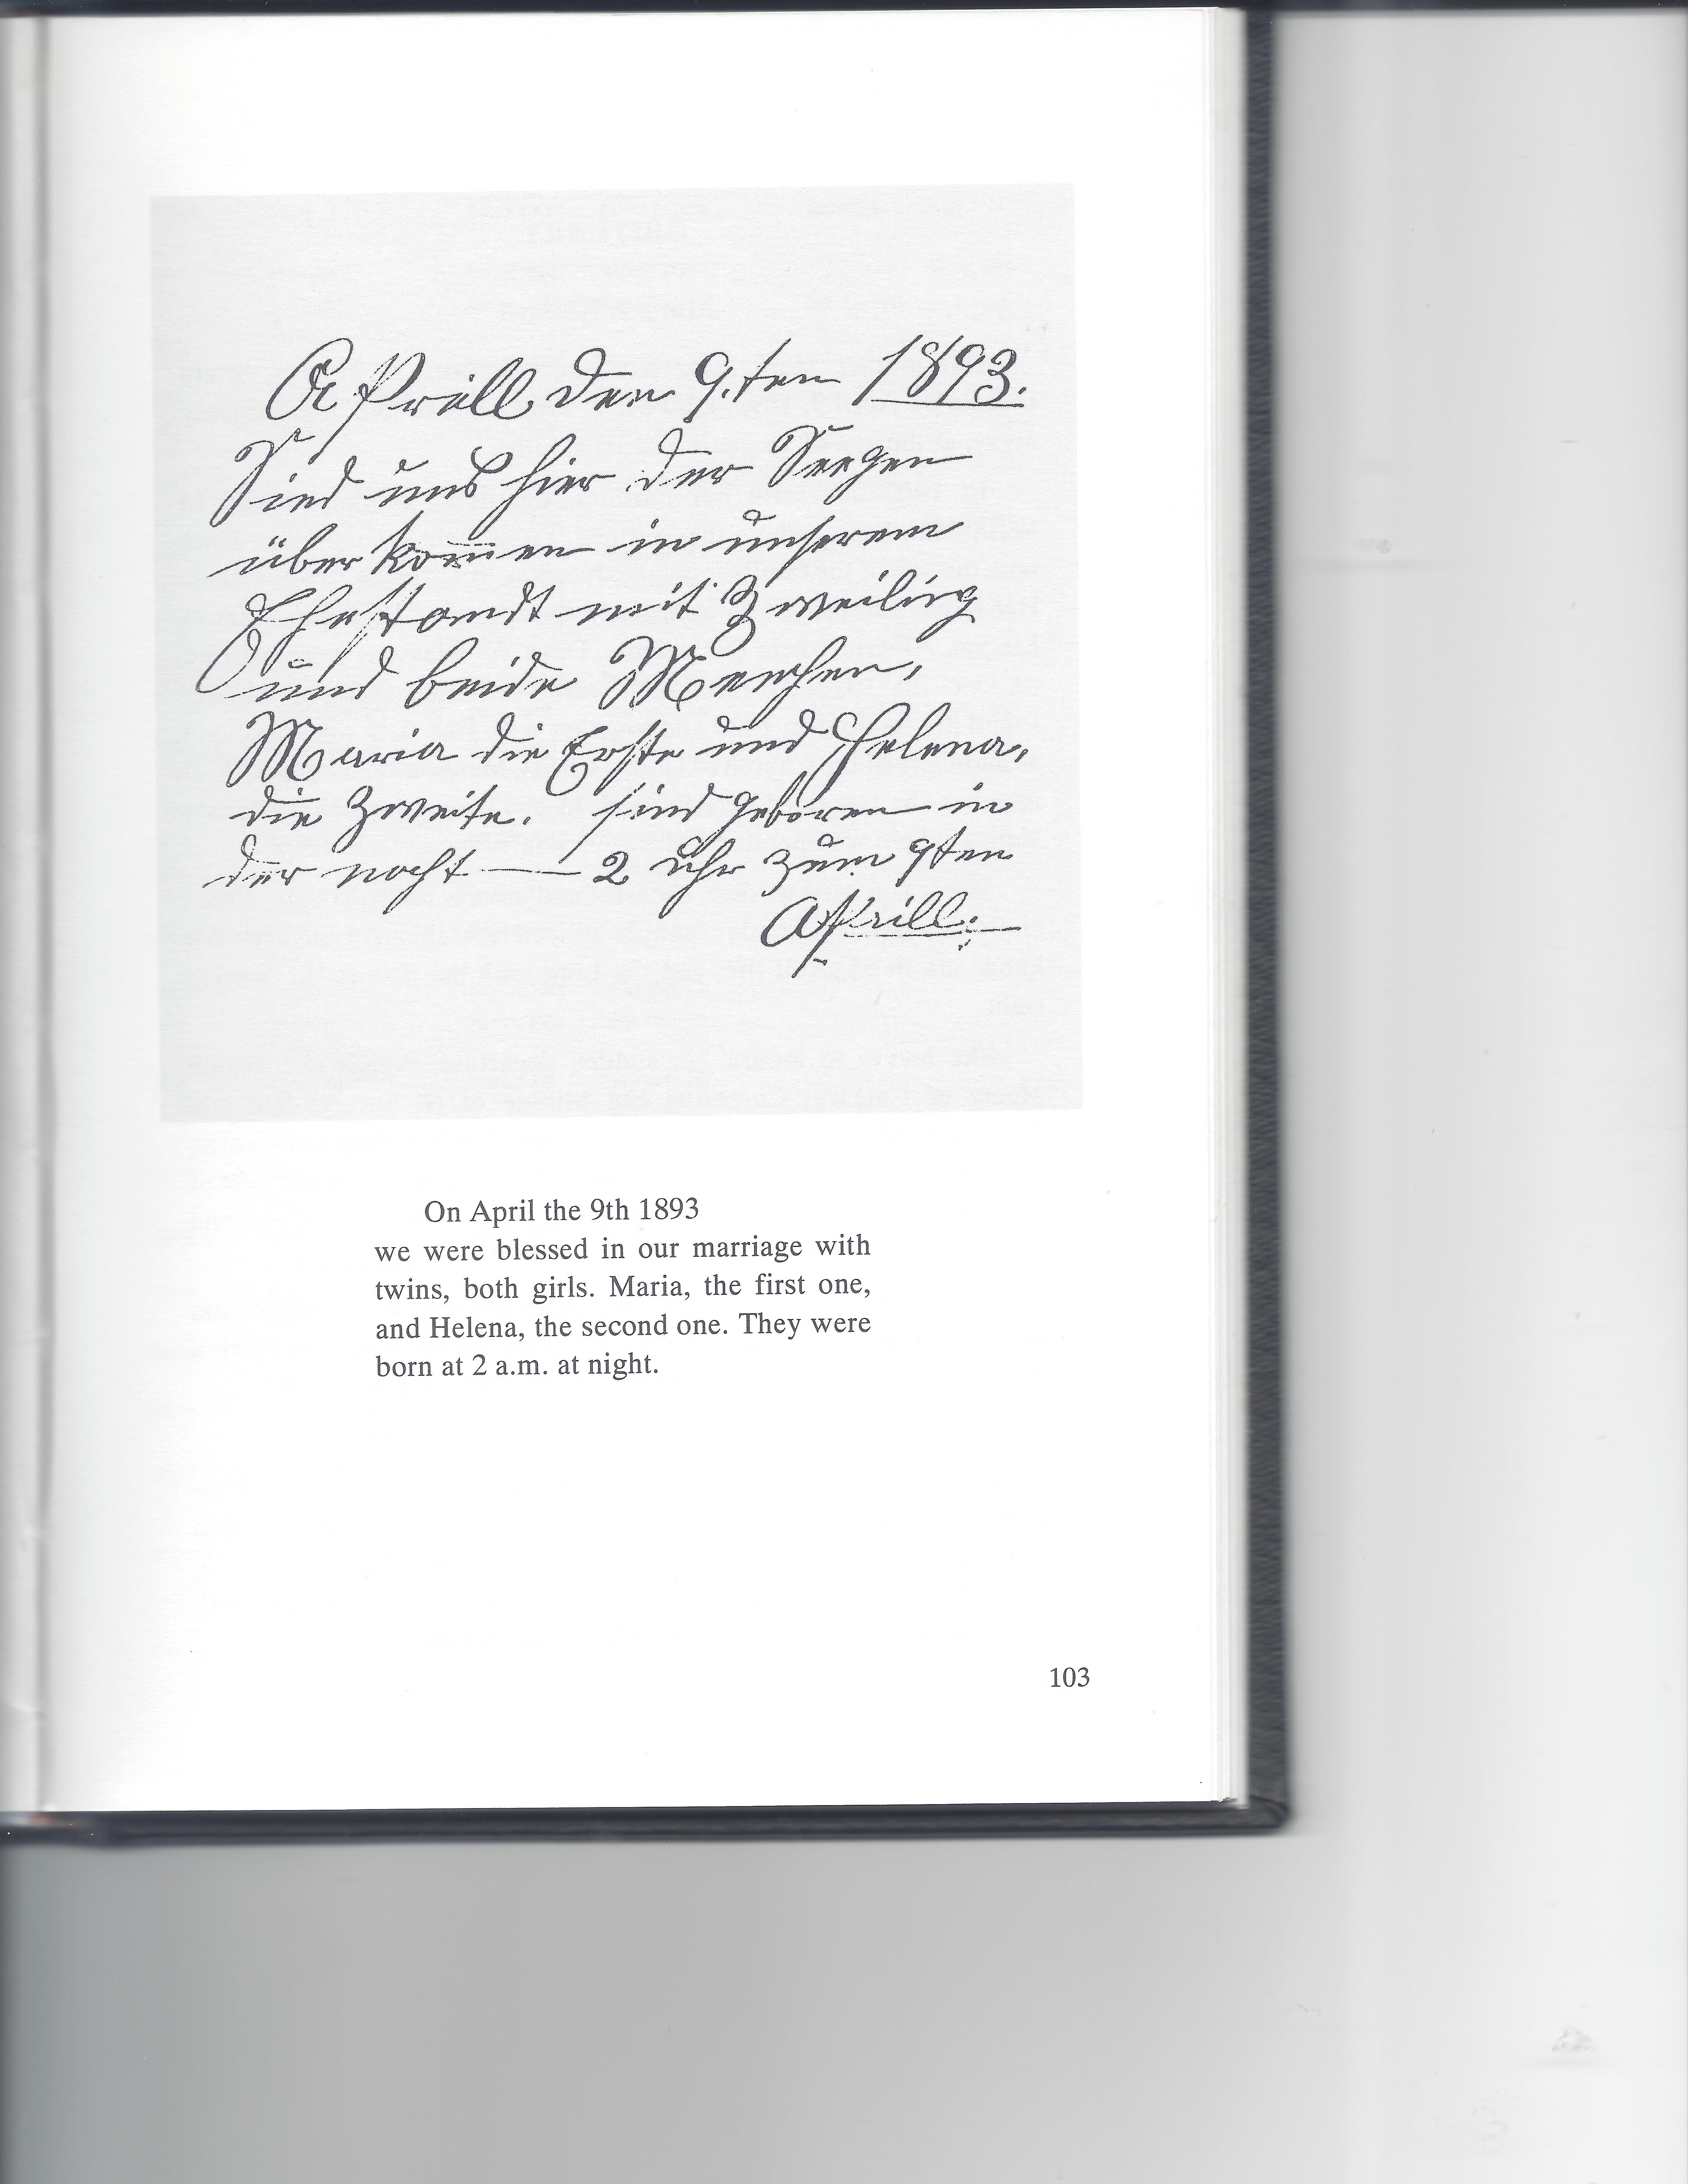 APrill den 9.ten 1893.
Sind uns hier der Seegen
überkom̅en in unserem
Ehestandt mit Zweilieg
und beide Meechen,
Maria die Erste und Helena,
die Zweite. sind geboren in
der nacht — 2 uhr zum 9ten
APrill.
On April the 9th 1893
we were blessed in our marriage with
twins, both girls. Maria, the first one,
and Helena, the second one. They were
born at 2 a.m. at night.
103